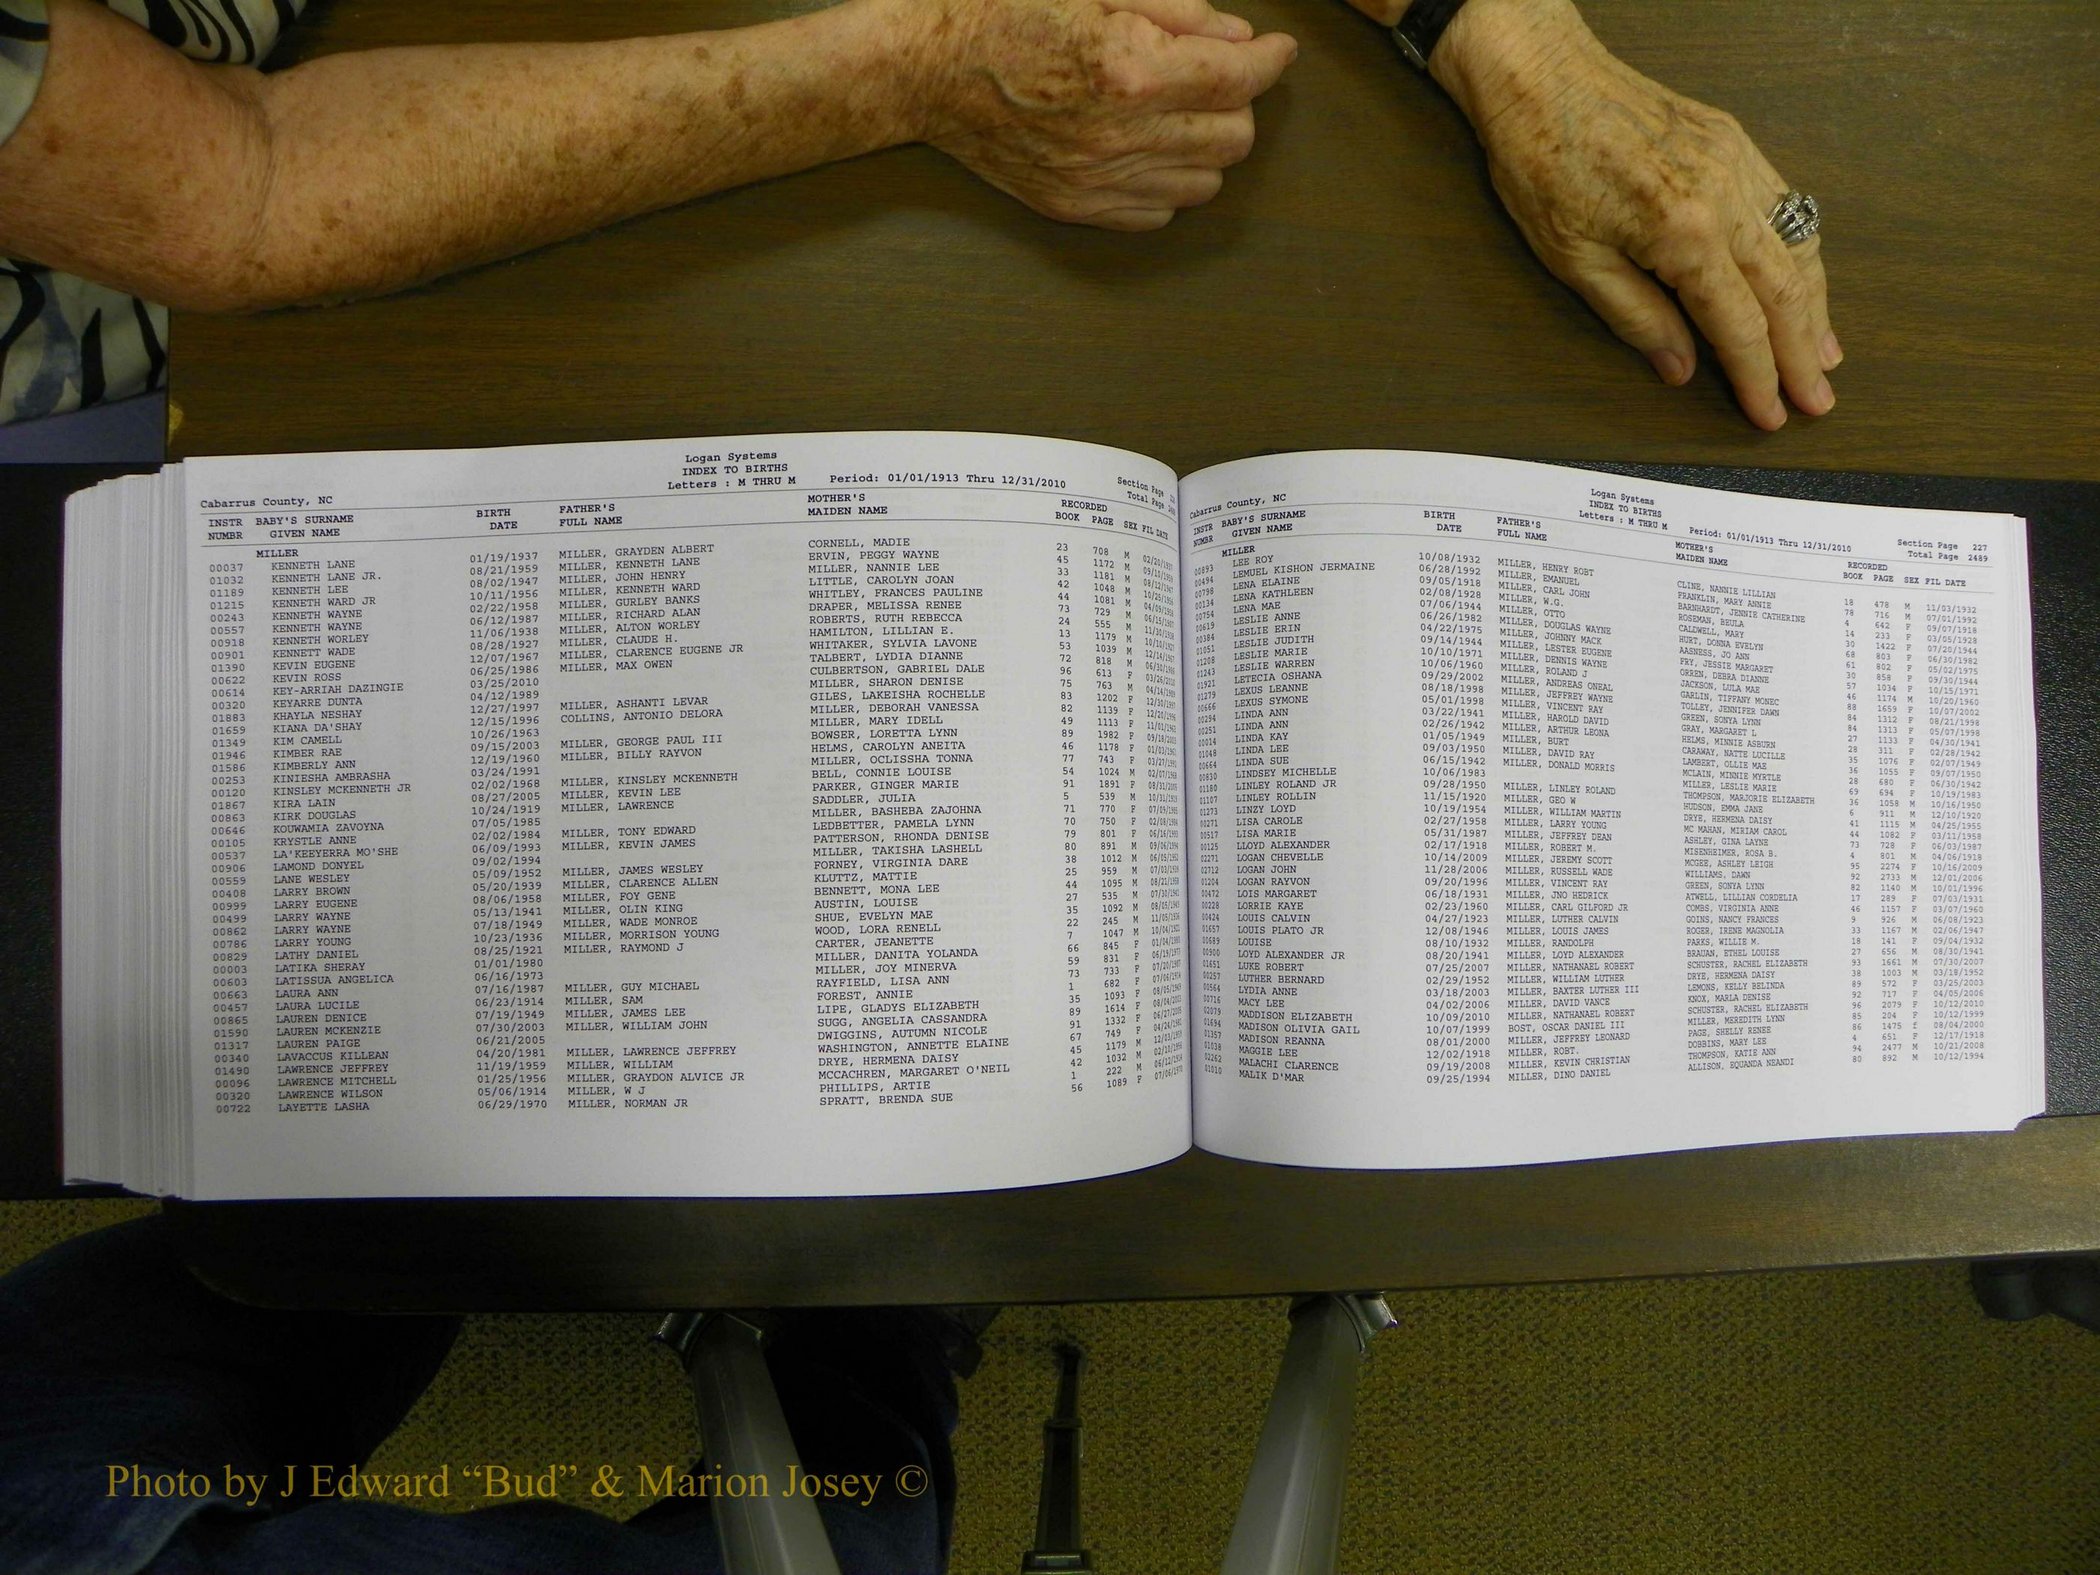 Logan Systems
INDEX TO BIRTHS
Letters : M THRU M Period: 01/01/1913 Thru 12/31/2010
Cabarrus County, NC Section Page
Total Page
INSTR BABY'S SURNAME BIRTH FATHER'S MOTHER'S RECORDED
NUMBR GIVEN NAME DATE FULL NAME MAIDEN NAME BOOK PAGE SEX FIL DATE
MILLER
00037 KENNETH LANE 01/19/1937 MILLER, GRAYDEN ALBERT CORNELL, MADIE 23 708 M
01032 KENNETH LANE JR. 08/21/1959 MILLER, KENNETH LANE ERVIN, PEGGY WAYNE 45 1172 M
01189 KENNETH LEE 08/02/1947 MILLER, JOHN HENRY MILLER, NANNIE LEE 33 1181 M
01215 KENNETH WARD JR 10/11/1956 MILLER, KENNETH WARD LITTLE, CAROLYN JOAN 42 1048 M
00243 KENNETH WAYNE 02/22/1958 MILLER, GURLEY BANKS WHITLEY, FRANCES PAULINE 44 1081 M
00557 KENNETH WAYNE 06/12/1987 MILLER, RICHARD ALAN DRAPER, MELISSA RENEE 73 729 M
00918 KENNETH WORLEY 11/06/1938 MILLER, ALTON WORLEY ROBERTS, RUTH REBECCA 24 555 M
00901 KENNETT WADE 08/28/1927 MILLER, CLAUDE H. HAMILTON, LILLIAN E. 13 1179 M
01390 KEVIN EUGENE 12/07/1967 MILLER, CLARENCE EUGENE JR WHITAKER, SYLVIA LAVONE 53 1039 M
00622 KEVIN ROSS 06/25/1986 MILLER, MAX OWEN TALBERT, LYDIA DIANNE 72 818 M
00614 KEY-ARRIAH DAZINGIE 03/25/2010 CULBERTSON, GABRIEL DALE 96 613 F
00320 KEYARRE DUNTA 04/12/1989 MILLER, SHARON DENISE 75 763 M
01883 KHAYLA NESHAY 12/27/1997 MILLER, ASHANTI LEVAR GILES, LAKEISHA ROCHELLE 83 1202 F
01659 KIANA DA'SHAY 12/15/1996 COLLINS, ANTONIO DELORA MILLER, DEBORAH VANESSA 82 1139 F
01349 KIM CAMELL 10/26/1963 MILLER, MARY IDELL 49 1113 F
01946 KIMBER RAE 09/15/2003 MILLER, GEORGE PAUL III BOWSER, LORETTA LYNN 89 1982 F
01586 KIMBERLY ANN 12/19/1960 MILLER, BILLY RAYVON HELMS, CAROLYN ANEITA 46 1178 F
00253 KINIESHA AMBRASHA 03/24/1991 MILLER, OCLISSHA TONNA 77 743 F
00120 KINSLEY MCKENNETH JR 02/02/1968 MILLER, KINSLEY MCKENNETH BELL, CONNIE LOUISE 54 1024 M
01867 KIRA LAIN 08/27/2005 MILLER, KEVIN LEE PARKER, GINGER MARIE 91 1891 F
00863 KIRK DOUGLAS 10/24/1919 MILLER, LAWRENCE SADDLER, JULIA 5 539 M
00646 KOUWAMIA ZAVOYNA 07/05/1985 MILLER, BASHEBA ZAJOHNA 71 770 F
00105 KRYSTLE ANNE 02/02/1984 MILLER, TONY EDWARD LEDBETTER, PAMELA LYNN 70 750 F
00537 LA'KEEYERRA MO'SHE 06/09/1993 MILLER, KEVIN JAMES PATTERSON, RHONDA DENISE 79 801 F
00906 LAMOND DONYEL 09/02/1994 MILLER, TAKISHA LASHELL 80 891 M
00559 LANE WESLEY 05/09/1952 MILLER, JAMES WESLEY FORNEY, VIRGINIA DARE 38 1012 M
00408 LARRY BROWN 05/20/1939 MILLER, CLARENCE ALLEN KLUTTZ, MATTIE 25 959 M
00999 LARRY EUGENE 08/06/1958 MILLER, FOY GENE BENNETT, MONA LEE 44 1095 M
00499 LARRY WAYNE 05/13/1941 MILLER, OLIN KING AUSTIN, LOUISE 27 535 M
00862 LARRY WAYNE 07/18/1949 MILLER, WADE MONROE SHUE, EVELYN MAE 35 1092 M
00786 LARRY YOUNG 10/23/1936 MILLER, MORRISON YOUNG WOOD, LORA RENELL 22 245 M
00829 LATHY DANIEL 08/25/1921 MILLER, RAYMOND J CARTER, JEANETTE 7 1047 M
00003 LATIKA SHERAY 01/01/1980 MILLER, DANITA YOLANDA 66 845 F
00603 LATISSUA ANGELICA 06/16/1973 MILLER, JOY MINERVA 59 831 F
00663 LAURA ANN 07/16/1987 MILLER, GUY MICHAEL RAYFIELD, LISA ANN 73 733 F
00457 LAURA LUCILE 06/23/1914 MILLER, SAM FOREST, ANNIE 1 682 F
00865 LAUREN DENICE 07/19/1949 MILLER, JAMES LEE LIPE, GLADYS ELIZABETH 35 1093 F
01590 LAUREN MCKENZIE 07/30/2003 MILLER, WILLIAM JOHN SUGG, ANGELIA CASSANDRA 89 1614 F
01317 LAUREN PAIGE 06/21/2005 DWIGGINS, AUTUMN NICOLE 91 1332 F
00340 LAVACCUS KILLEAN 04/20/1981 MILLER, LAWRENCE JEFFREY WASHINGTON, ANNETTE ELAINE 67 749
01490 LAWRENCE JEFFREY 11/19/1959 MILLER, WILLIAM DRYE, HERMENA DAISY 45 1179 M
00096 LAWRENCE MITCHELL 01/25/1956 MILLER, GRAYDON ALVICE JR MCCACHREN, MARGARET O'NEIL 42 1032 M
00320 LAWRENCE WILSON 05/06/1914 MILLER, W J PHILLIPS, ARTIE 1 222 M
00722 LAYETTE LASHA 06/29/1970 MILLER, NORMAN JR SPRATT, BRENDA SUE 56 1089 F
Logan Systems
INDEX TO BIRTHS
Letters : M THRU M Period: 01/01/1913 Thru 12/31/2010
Cabarrus County, NC Section Page 227
Total Page 2489
INSTR BABY'S SURNAME BIRTH FATHER'S MOTHER'S RECORDED
NUMBR GIVEN NAME DATE FULL NAME MAIDEN NAME BOOK PAGE SEX FIL DATE
MILLER
00893 LEE ROY 10/08/1932 MILLER, HENRY ROBT CLINE, NANNIE LILLIAN 18 478 M 11/03/1932
00494 LEMUEL KISHON JERMAINE 06/28/1992 MILLER, EMANUEL FRANKLIN, MARY ANNIE 78 716 M 07/01/1992
00798 LENA ELAINE 09/05/1918 MILLER, CARL JOHN BARNHARDT, JENNIE CATHERINE 4 642 F 09/07/1918
00134 LENA KATHLEEN 02/08/1928 MILLER, W.G. ROSEMAN, BEULA 14 233 F 03/05/1928
00754 LENA MAE 07/06/1944 MILLER, OTTO CALDWELL, MARY 30 1422 F 07/20/1944
00619 LESLIE ANNE 06/26/1982 MILLER, DOUGLAS WAYNE HURT, DONNA EVELYN 68 803 F 06/30/1982
00384 LESLIE ERIN 04/22/1975 MILLER, JOHNNY MACK AASNESS, JO ANN 61 802 F 05/02/1975
01051 LESLIE JUDITH 09/14/1944 MILLER, LESTER EUGENE FRY, JESSIE MARGARET 30 858 F 09/30/1944
01208 LESLIE MARIE 10/10/1971 MILLER, DENNIS WAYNE ORREN, DEBRA DIANNE 57 1034 F 10/15/1971
01243 LESLIE WARREN 10/06/1960 MILLER, ROLAND J JACKSON, LULA MAE 46 1174 M 10/20/1960
01921 LETECIA OSHANA 09/29/2002 MILLER, ANDREAS ONEAL GARLIN, TIFFANY MONEC 88 1659 F 10/07/2002
01279 LEXUS LEANNE 08/18/1998 MILLER, JEFFREY WAYNE TOLLEY, JENNIFER DAWN 84 1312 F 08/21/1998
00666 LEXUS SYMONE 05/01/1998 MILLER, VINCENT RAY GREEN, SONYA LYNN 84 1313 F 05/07/1998
00294 LINDA ANN 03/22/1941 MILLER, HAROLD DAVID GRAY, MARGARET L 27 1133 F 04/30/1941
00251 LINDA ANN 02/26/1942 MILLER, ARTHUR LEONA HELMS, MINNIE ASBURN 28 311 F 02/28/1942
00014 LINDA KAY 01/05/1949 MILLER, BURT CARAWAY, NATTE LUCILLE 35 1076 F 02/07/1949
01048 LINDA LEE 09/03/1950 MILLER, DAVID RAY LAMBERT, OLLIE MAE 36 1055 F 09/07/1950
00664 LINDA SUE 06/15/1942 MILLER, DONALD MORRIS MCLAIN, MINNIE MYRTLE 28 680 F 06/30/1942
00830 LINDSEY MICHELLE 10/06/1983 MILLER, LESLIE MARIE 69 694 F 10/19/1983
01180 LINLEY ROLAND JR 09/28/1950 MILLER, LINLEY ROLAND THOMPSON, MARJORIE ELIZABETH 36 1058 M 10/16/1950
01107 LINLEY ROLLIN 11/15/1920 MILLER, GEO W HUDSON, EMMA JANE 6 911 M 12/10/1920
01273 LINZY LOYD 10/19/1954 MILLER, WILLIAM MARTIN DRYE, HERMENA DAISY 41 1115 M 04/25/1955
00271 LISA CAROLE 02/27/1958 MILLER, LARRY YOUNG MC MAHAN, MIRIAM CAROL 44 1082 F 03/11/1958
00517 LISA MARIE 05/31/1987 MILLER, JEFFREY DEAN ASHLEY, GINA LAYNE 73 728 F 06/03/1987
00125 LLOYD ALEXANDER 02/17/1918 MILLER, ROBERT M. MISENHEIMER, ROSA B. 4 801 M 04/06/1918
02271 LOGAN CHEVELLE 10/14/2009 MILLER, JEREMY SCOTT MCGEE, ASHLEY LEIGH 95 2274 F 10/16/2009
02712 LOGAN JOHN 11/28/2006 MILLER, RUSSELL WADE WILLIAMS, DAWN 92 2733 M 12/01/2006
01204 LOGAN RAYVON 09/20/1996 MILLER, VINCENT RAY GREEN, SONYA LYNN 82 1140 M 10/01/1996
00472 LOIS MARGARET 06/18/1931 MILLER, JNO HEDRICK ATWELL, LILLIAN CORDELIA 17 289 F 07/03/1931
00228 LORRIE KAYE 02/23/1960 MILLER, CARL GILFORD JR COMBS, VIRGINIA ANNE 46 1157 F 03/07/1960
00424 LOUIS CALVIN 04/27/1923 MILLER, LUTHER CALVIN GOINS, NANCY FRANCES 9 926 M 06/08/1923
01657 LOUIS PLATO JR 12/08/1946 MILLER, LOUIS JAMES ROGER, IRENE MAGNOLIA 33 1167 M 02/06/1947
00689 LOUISE 08/10/1932 MILLER, RANDOLPH PARKS, WILLIE M. 18 141 F 09/04/1932
00900 LOYD ALEXANDER JR 08/20/1941 MILLER, LOYD ALEXANDER BRAUAN, ETHEL LOUISE 27 656 M 08/30/1941
01651 LUKE ROBERT 07/25/2007 MILLER, NATHANAEL ROBERT SCHUSTER, RACHEL ELIZABETH 93 1661 M 07/30/2007
00257 LUTHER BERNARD 02/29/1952 MILLER, WILLIAM LUTHER DRYE, HERMENA DAISY 38 1003 M 03/18/1952
00564 LYDIA ANNE 03/18/2003 MILLER, BAXTER LUTHER III LEMONS, KELLY BELINDA 89 572 F 03/25/2003
00716 MACY LEE 04/02/2006 MILLER, DAVID VANCE KNOX, MARLA DENISE 92 717 F 04/05/2006
02079 MADDISON ELIZABETH 10/09/2010 MILLER, NATHANAEL ROBERT SCHUSTER, RACHEL ELIZABETH 96 2079 F 10/12/2010
01694 MADISON OLIVIA GAIL 10/07/1999 BOST, OSCAR DANIEL III MILLER, MEREDITH LYNN 85 204 F 10/12/1999
01357 MADISON REANNA 08/01/2000 MILLER, JEFFREY LEONARD PAGE, SHELLY RENEE 86 1475 f 08/04/2000
01038 MAGGIE LEE 12/02/1918 MILLER, ROBT. DOBBINS, MARY LEE 4 651 F 12/17/1918
02262 MALACHI CLARENCE 09/19/2008 MILLER, KEVIN CHRISTIAN THOMPSON, KATIE ANN 94 2477 M 10/21/2008
01010 MALIK D'MAR 09/25/1994 MILLER, DINO DANIEL ALLISON, EQUANDA NEANDI 80 892 M 10/12/1994
Photo by J Edward “Bud” & Marion Josey ©